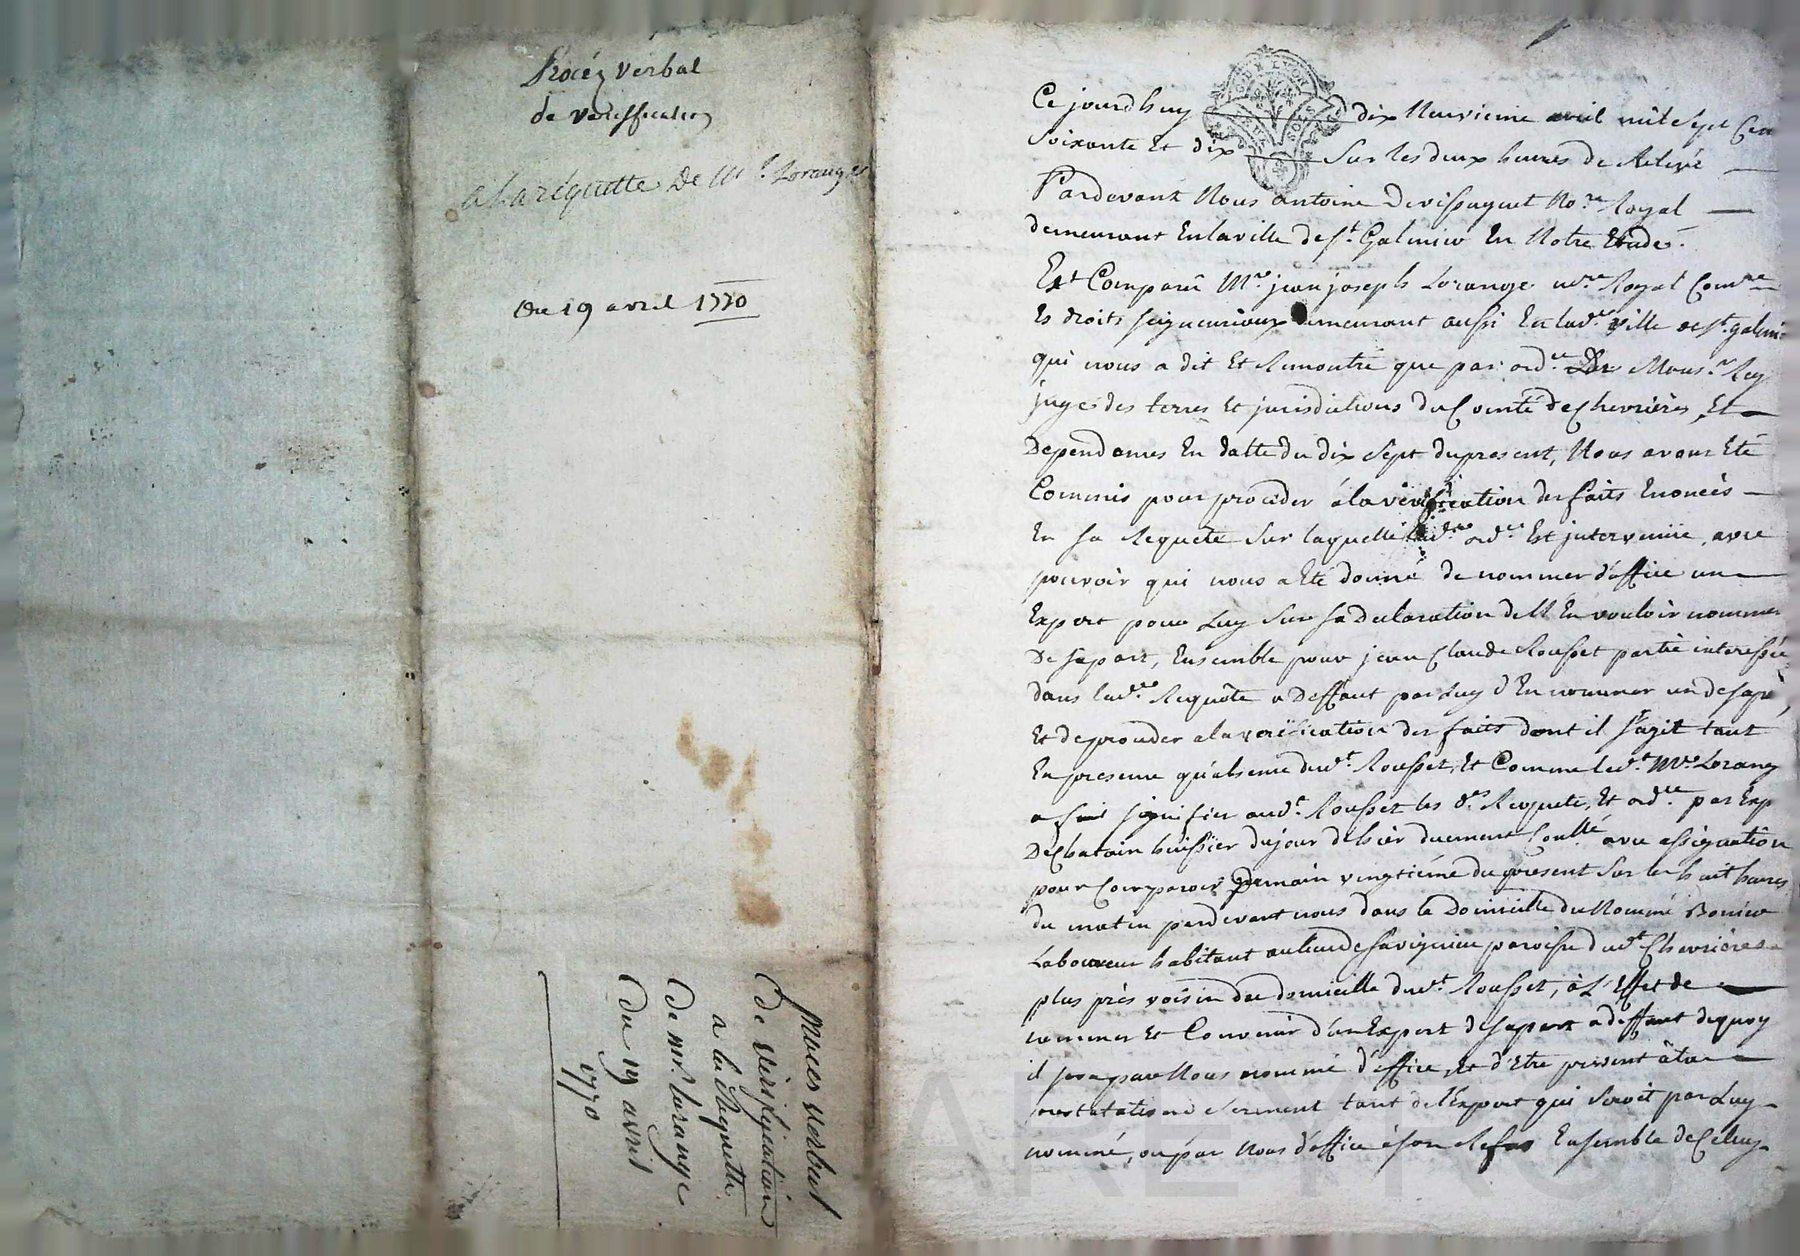 Procéz verbal
de veriffication
a La réquette De Mr. Lorange
Du 19 avril 1770
procès verbal
De vériffication
a la Requette
De mr. Lorange
Du 19 avril
1770
Ce jourdhuy dix Neuvieme avril mil Sept Cen
Soixante Et dix Sur les deux heures de Relevé
Pardevant Nous antoine Devissaguet No.re Royal
demeurant En la ville de St. Galmier En Notre Etude.
Est Comparû Mre jean joseph Lorange no.re Royal Com.re
Es droits seigneuriaux demeurant aussi En lad.e ville de St. galmi
qui nous a dit Et Remontré que par ord.ce De Mons.r Rey
juge des terres Et jurisdictions du Comté de Chevrières, Et
Dependances En datte du dix Sept du present, Nous avons Eté
Commis pour procéder á la vériffication des faits Enoncés
En sa Requete Sur laquelle lad.e ord.ce Est intervenüe, avec
pouvoir qui nous a Eté donné de nommer d'office un
Expert pour Luy Sur sa Déclaration de N'En vouloir nommer
De sa part, Ensemble pour jean Claude Rousset partie interessée
dans lad.e Requête a Deffaut par Luy d'En nommer un de sa part,
Et de proceder a la verification des faits dont il s'agit tant
En presence qu'absence dud.t Rousset, Et Comme led.t Mre Lorange
a fait signifier aud.t Rousset les d.es Requete, Et ord.ce par Exp
De Chatain huissier du jour d'hier duement Conllé avec assignation
pour Comparoir Demain vingtiéme du présent Sur les huit heures
du matin pardevant nous dans le Domicille du Nommé Bonier
Laboureur habitant au lieu de Savignieu paroisse dud.t Chevrières
plus près voisin du domicille dud.t Rousset, à L'Effet de
nommer Et Convenir d'un Expert de sa part a deffaut de quoy
il sera par Nous nommé d'office, Et d'Etre présent à la
prestation de serment tant de l'Expert qui seroit par Luy
nommé, ou par Nous d'office à son Refus Ensemble de Celuy